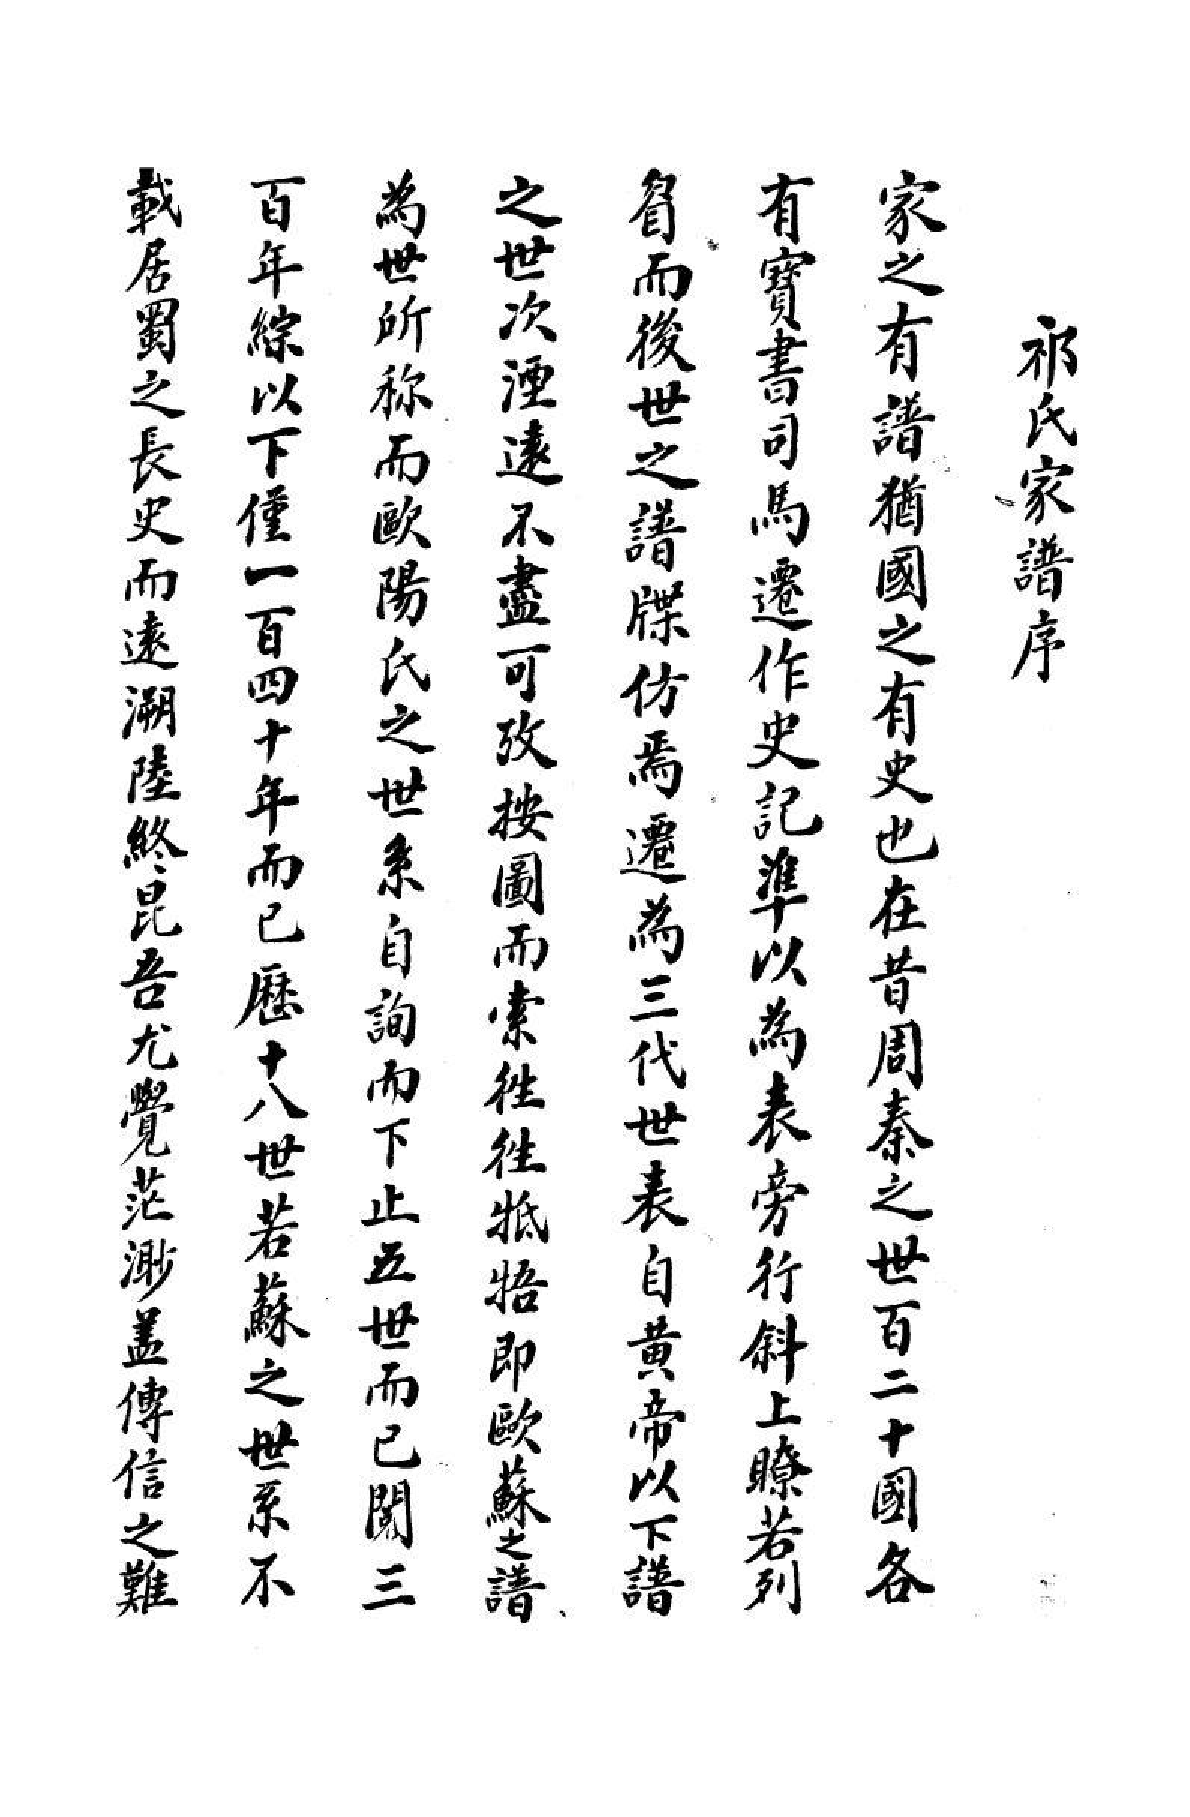 祁氏家譜序
家之有譜猶國之有史也在昔周秦之世百二十國各
有寶書司馬遷作史記準以為表旁行斜上瞭若列
眉而後世之譜牒仿焉遷為三代世表自黃帝以下譜
之世次湮遠不盡可攷按圖而索徃徃牴牾即歐蘇之譜
為世所称而歐陽氏之世系自詢而下止五世而已閱三
百年綜以下僅一百四十年而已歷十八世若蘇之世系不
載居蜀之長史而遠溯陸終昆吾尤覺茫渺盖傳信之難